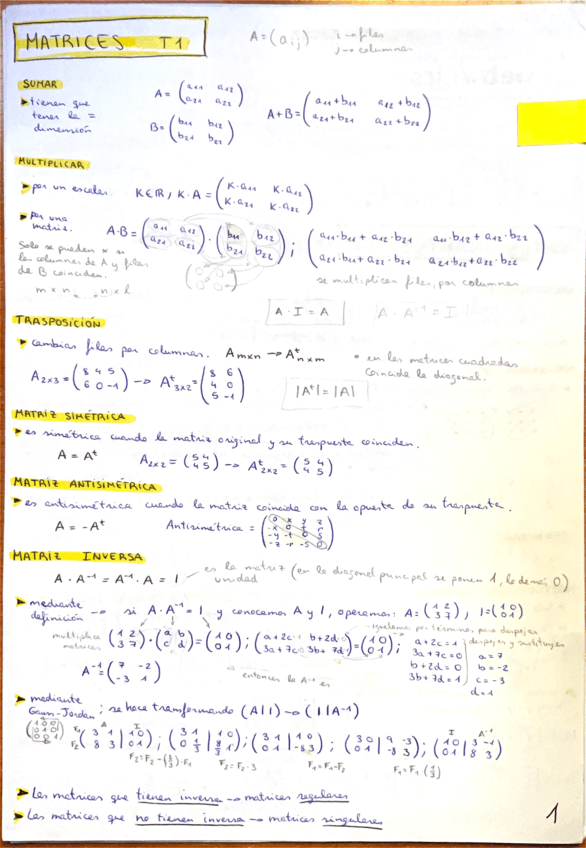 MATRICES T1
A = (aᵢⱼ) i → filas
j → columnas
SUMAR
▸ tienen que tener la = dimensión
A = (a₁₁ a₁₂ / a₂₁ a₂₂)
B = (b₁₁ b₁₂ / b₂₁ b₂₂)
A+B = (a₁₁+b₁₁ a₁₂+b₁₂ / a₂₁+b₂₁ a₂₂+b₂₂)
MULTIPLICAR
▸ por un escalar. K∈ℝ, K·A = (K·a₁₁ K·a₁₂ / K·a₂₁ K·a₂₂)
▸ Por una matriz. A·B = (a₁₁ a₁₂ / a₂₁ a₂₂) · (b₁₁ b₁₂ / b₂₁ b₂₂) ; (a₁₁·b₁₁ + a₁₂·b₂₁ a₁₁·b₁₂ + a₁₂·b₂₂ / a₂₁·b₁₁ + a₂₂·b₂₁ a₂₁·b₁₂ + a₂₂·b₂₂)
Solo se pueden × si
las columnas de A y filas
de B coinciden.
m × n n × l
se multiplican filas, por columnas
A · I = A
A · A⁻¹ = I
TRASPOSICIÓN
▸ cambiar filas por columnas. Aₘₓₙ → Aᵗₙₓₘ
en las matrices cuadradas
coincide la diagonal.
A₂ₓ₃ = (8 4 5 / 6 0 -1) → Aᵗ₃ₓ₂ = (8 6 / 4 0 / 5 -1)
|Aᵗ| = |A|
MATRIZ SIMÉTRICA
▸ es simétrica cuando la matriz original y su traspuesta coinciden.
A = Aᵗ A₂ₓ₂ = (5 4 / 4 5) → Aᵗ₂ₓ₂ = (5 4 / 4 5)
MATRIZ ANTISIMÉTRICA
▸ es antisimétrica cuando la matriz coincide con la opuesta de su traspuesta.
A = -Aᵗ Antisimétrica =
MATRIZ INVERSA
A · A⁻¹ = A⁻¹ · A = I
es la matriz unidad (en la diagonal principal se ponen 1, lo demás 0)
▸ mediante definición → si A · A⁻¹ = I y conocemos A y I, operamos: A = (1 2 / 3 7), I = (1 0 / 0 1)
igualamos por términos para despejar
multiplica matrices (1 2 / 3 7) · (a b / c d) = (1 0 / 0 1) ; (a+2c b+2d / 3a+7c 3b+7d) = (1 0 / 0 1) ;
a + 2c = 1
3a + 7c = 0
b + 2d = 0
3b + 7d = 1
despejas y sustituyes
a = 7
b = -2
c = -3
d = 1
A⁻¹ = (7 -2 / -3 1)
→ entonces la A⁻¹ es
▸ mediante Gauss-Jordan ; se hace transformando (A|I) → (I|A⁻¹)
F₁ F₂ (3 1 | 1 0 / 8 3 | 0 1) ;
F₂ = F₂ - (8/3)·F₁
F₂ = F₂ · 3
(3 1 | 1 0 / 0 1 | -8 3) ;
F₁ = F₁ - F₂
(3 0 | 9 -3 / 0 1 | -8 3) ;
F₁ = F₁ (1/3)
▸ Las matrices que tienen inversa → matrices regulares
▸ Las matrices que no tienen inversa → matrices singulares
1